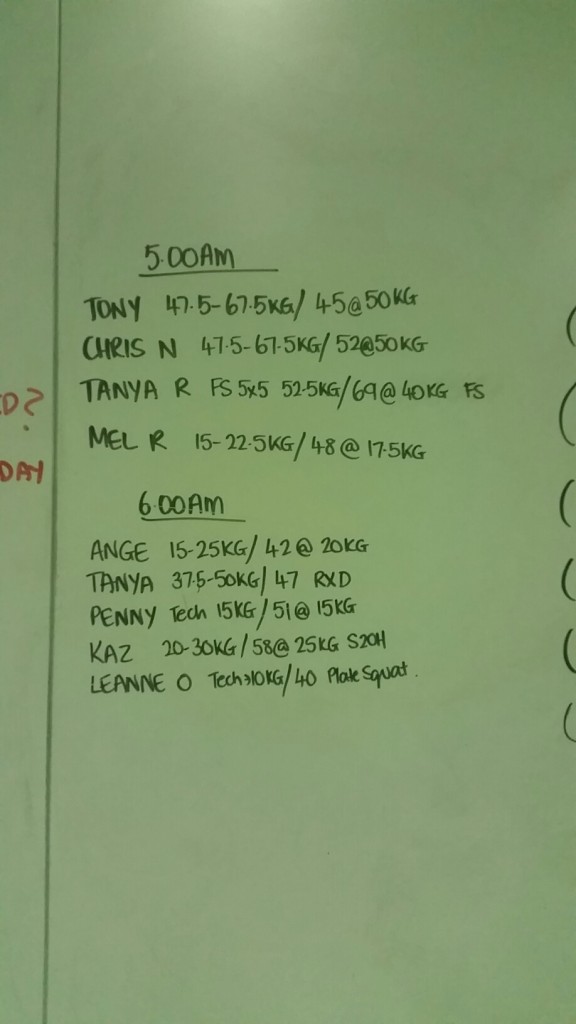 5.00AM
TONY 47.5-67.5KG/ 45@50KG
CHRIS N 47.5-67.5KG/ 52@50KG
TANYA R FS 5x5 52.5KG/69@40KG FS
MEL R 15-22.5KG/48@17.5KG
6.00AM
ANGE 15-25KG/ 42@20KG
TANYA 37.5-50KG/ 47 RXD
PENNY Tech 15KG/51@15KG
KAZ 20-30KG/58@25KG S2OH
LEANNE O Tech→10KG/40 Plate Squat.
D?
DAY